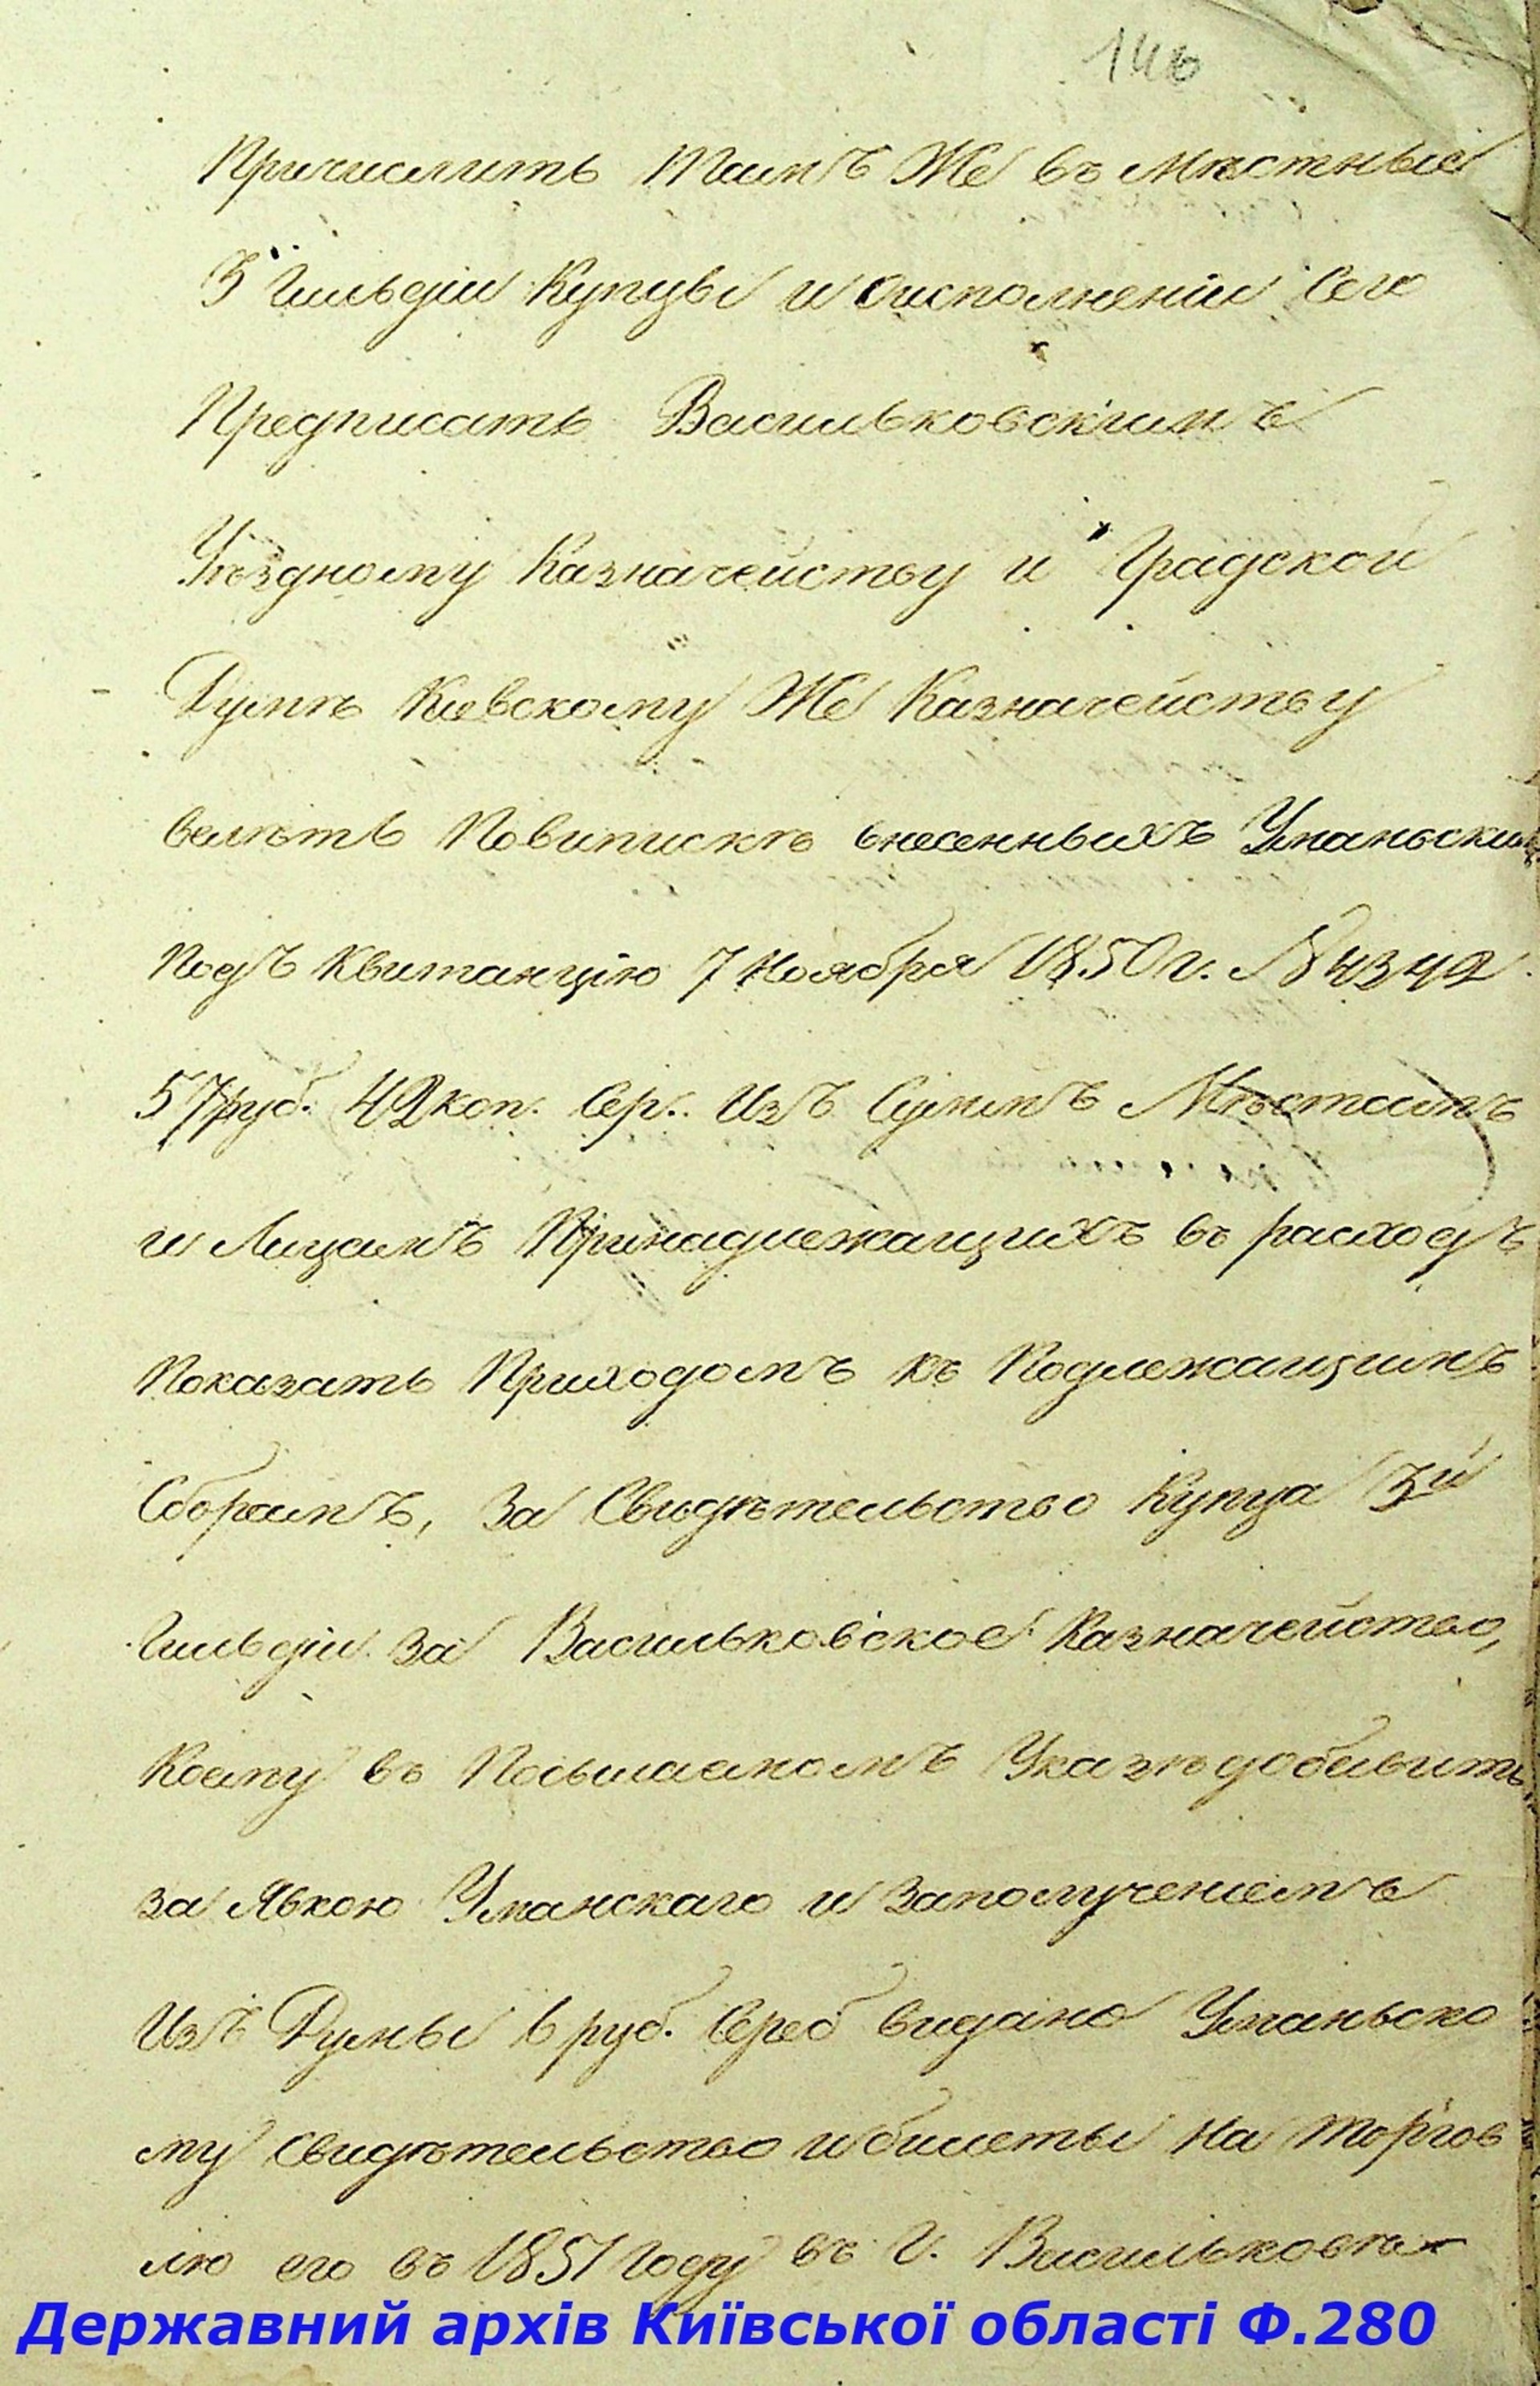 146
Причислить тамъ же въ мѣстные
3 Гильдіи купцы и оисполненіи сего
Предписать Васильковскимъ
Уѣздному Казначейству и Градской
Думѣ Кіевскому же Казначейству
велѣть Повипискѣ внесенныхъ Уманьскимъ
Подъ квитанцію 7 Ноября 1850 г. № 4342
57 руб. 42 коп. сер. Изъ Суммъ Мѣстамъ
и Лицамъ Принадлежащихъ въ расходъ
Показать Приходомъ къ Подлежащимъ
Сборамъ, за Свидѣтельство купца 3й
Гильдіи за Васильковское Казначейство,
Коему въ Посылаемомъ Указѣ добавить
за явкою Уманскаго и заполученіемъ
Изъ Думы 6 руб. Сереб видано Уманьско
му свидѣтельство и билеты на торгов
лю его въ 1851 году въ Г. Васильковѣ
Державний архів Київської області Ф.280